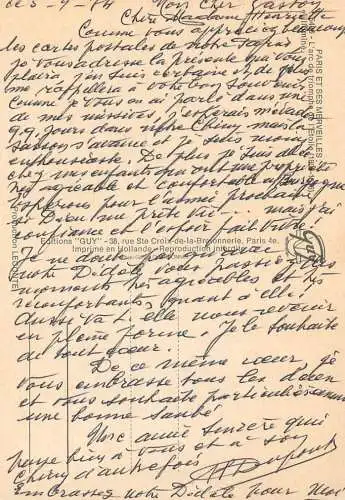 ce 5-9-84 Mon cher Gaston
Chère Madame Henriette
Comme vous appréciez beaucoup
les cartes postales de notre Paris
je vous adresse la présente qui vous
plaira, j'en suis certaine et de plus
me rappellera à votre bon souvenir
Comme je vous en ai parlé dans une
de mes missives, j'espérais
q.q. jours dans notre Chiny mais la
saison s'avance et je suis moins
enthousiaste. De plus je suis
chez mes enfants qui ont une
agréable et confortable
espérons pour l'année prochaine
si Dieu me prête vie - mais j'ai
confiance et l'espoir fait vivre
Je ne doute pas qu'avec
notre Dédèle vous passiez des
moments très agréables et très
réconfortants, quant à elle!
va t-elle nous revenir
en pleine forme. Je le souhaite
de tout cœur.
De ce même cœur, je
vous embrasse tous les deux
et vous souhaite particulièrement
une bonne santé
Votre amie sincère qui
pense bien à vous et à son
Chiny d'autrefois
Dupont
Embrassez notre Dédèle pour moi
Editions "GUY" - 38, rue Ste Croix-de-la-Bretonnerie, Paris 4e.
Imprimé en Hollande - Reproduction interdite
PARIS ET SES MERVEILLES
Guy